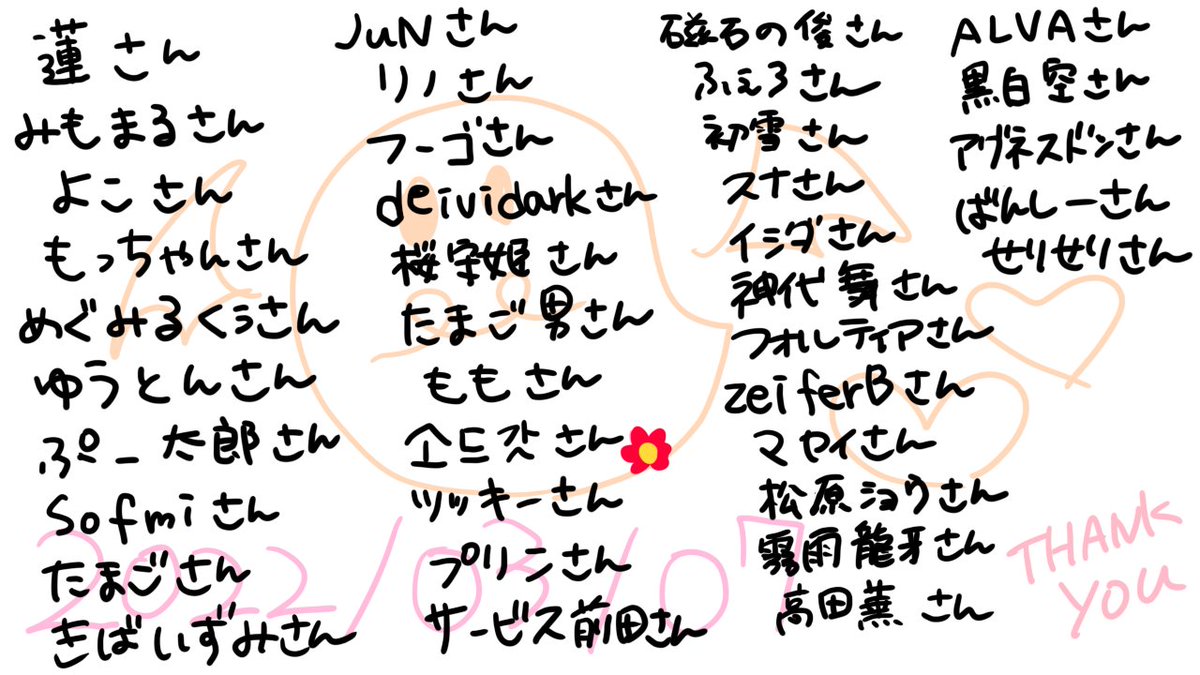 蓮さん
みもまるさん
よこさん
もっちゃんさん
めぐみるくぅさん
ゆうとんさん
ぷー太郎さん
Sofmiさん
たまごさん
きばいずみさん
JuNさん
リノさん
フーゴさん
deividarkさん
桜宰姫さん
たまご男さん
ももさん
소드갓さん
ツッキーさん
プリンさん
サービス前田さん
磁石の俊さん
ふぇろさん
初雪さん
スナさん
イシダさん
神代舞さん
フォルティアさん
zeiferBさん
マヤイさん
松原ショウさん
霧雨龍牙さん
高田薫さん
ALVAさん
黒白空さん
アグネスドンさん
ばんしーさん
せりせりさん
2022/03/07
THANK
YOU